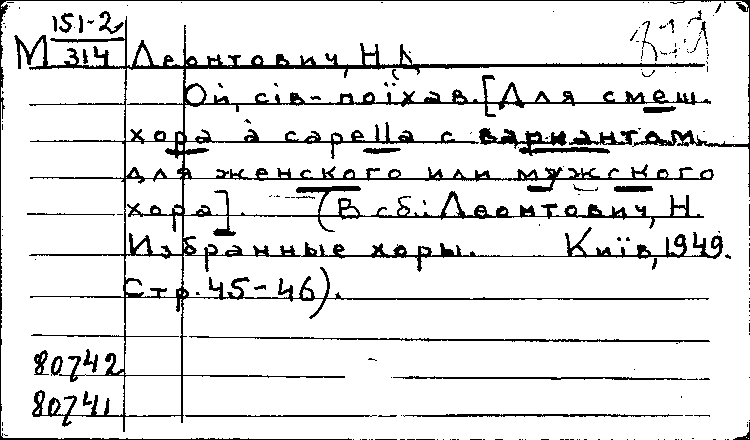 М 151-2
314
Леонтович, Н.
Ой, сів-поїхав. [Для смеш.
хора à capella с вариантом
для женского или мужского
хора]. (В сб.: Леонтович, Н.
Избранные хоры. Київ, 1949.
Стр. 45-46).
80742
80741